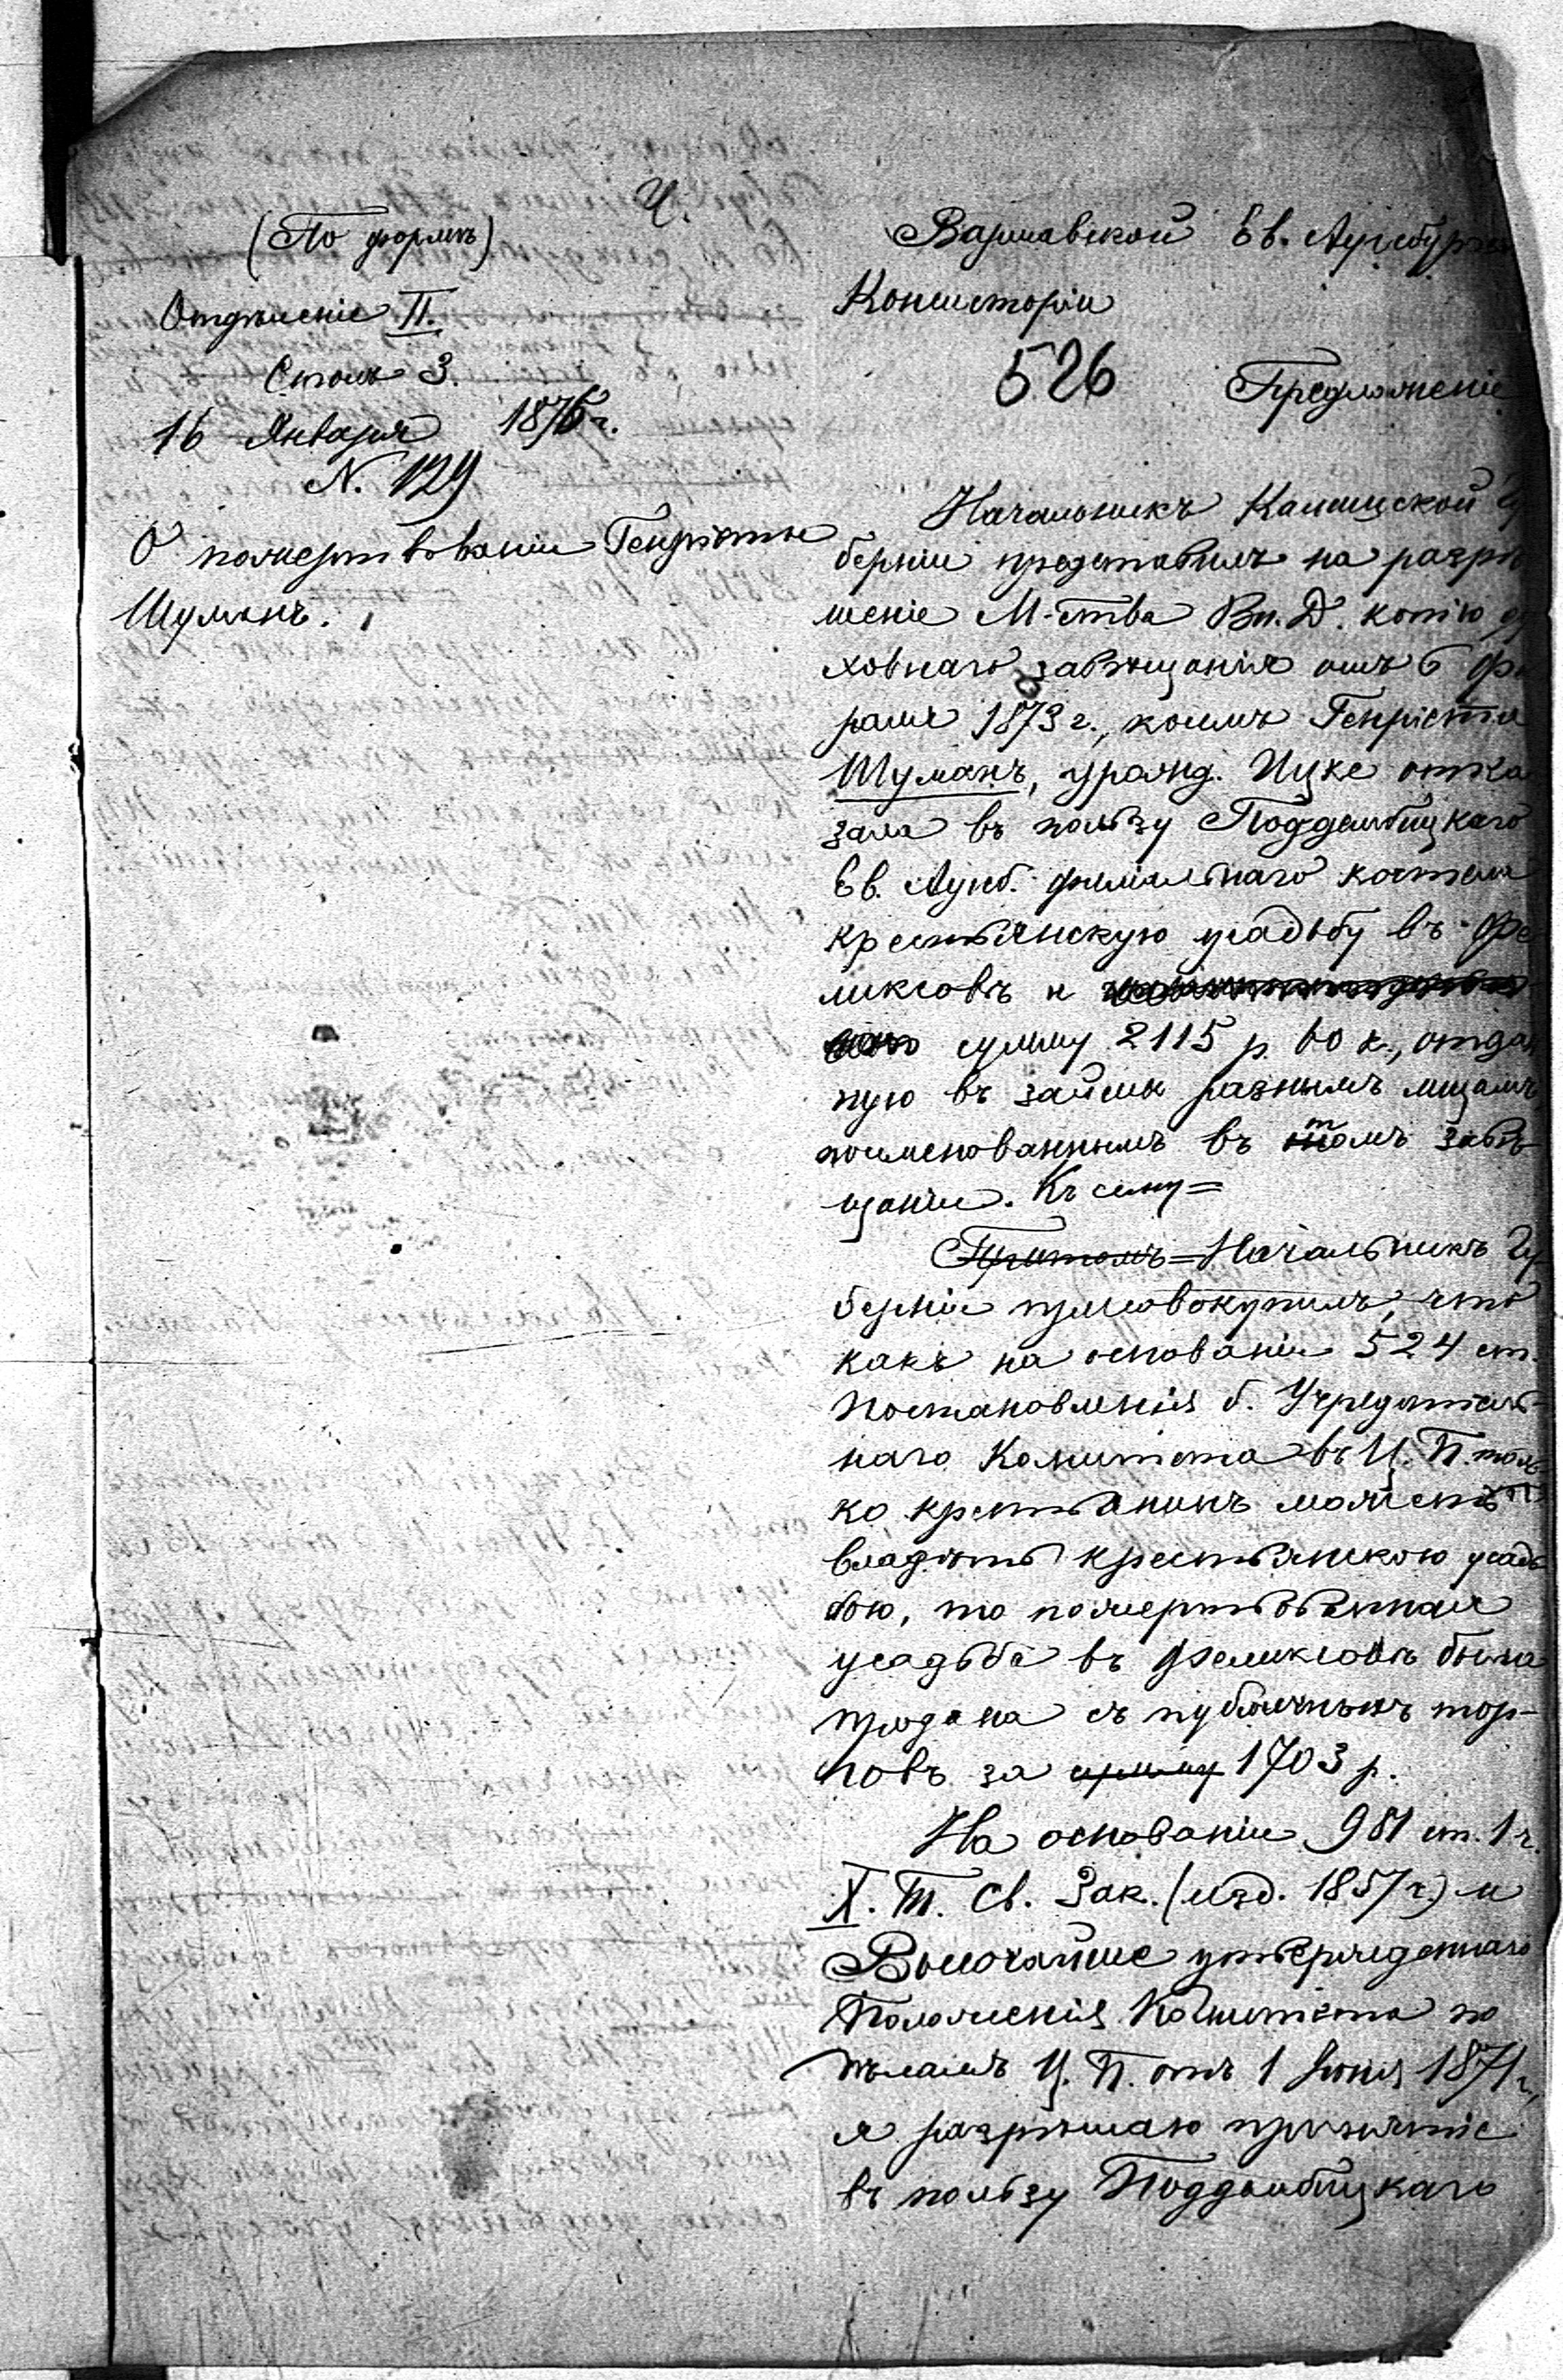 Ч.
(По формѣ)
Отдѣленіе II.
Столъ 3.
16 Января 1876 г.
N. 129
О пожертвованіи Генріетты
Шуманъ.
Варшавской Ев. Аугсбургск
Консисторіи
526 Предложеніе
Начальникъ Калишской Гу
берніи представилъ на разрѣ
шеніе М-ства Вн. Д. копію ду
ховнаго завѣщанія отъ 6 Фе
раля 1873 г., коимъ Генріетта
Шуманъ, урожд. Цуке отка
зала въ пользу Поддембицкаго
Ев. Аугсб. филіальнаго костела
крестьянскую усадьбу въ Фе
ликсовѣ и
сумму 2115 р. 60 к., отдан
ную въ займы разнымъ лицамъ
поименованнымъ въ томъ завѣ-
щаніи. Къ сему =
Притомъ = Начальникъ Гу
берніи присовокупилъ, что
какъ на основаніи 524 ст.
Постановленія б. Учредитель-
наго Комитета въ Ц. П. толь-
ко крестьянинъ можетъ
владѣть крестьянскою усадь
бою, то пожертвованная
усадьба въ Феликсовѣ была
продана съ публичныхъ тор-
говъ за сумму 1703 р.
На основаніи 981 ст. 1 ч.
X. Т. Св. Зак. (изд. 1857 г.) и
Высочайше утвержденнаго
Положенія Комитета по
дѣламъ Ц. П. отъ 1 Іюня 1871 г.,
я разрѣшаю принятіе
въ пользу Поддембицкаго